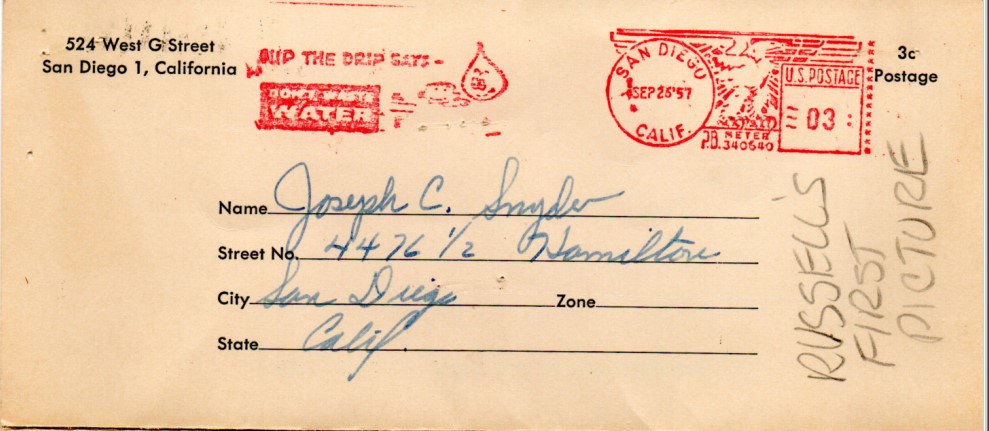 524 West G Street
San Diego 1, California
THE DRIP SAYS -
DON'T WASTE
WATER
SAN DIEGO
CALIF.
U.S. POSTAGE
03
P.B. METER
340640
3c
Postage
Name Joseph C. Snyder
Street No. 4476 1/2 Hamilton
City San Diego Zone
State Calif.
RUSSELL'S
FIRST
PICTURE